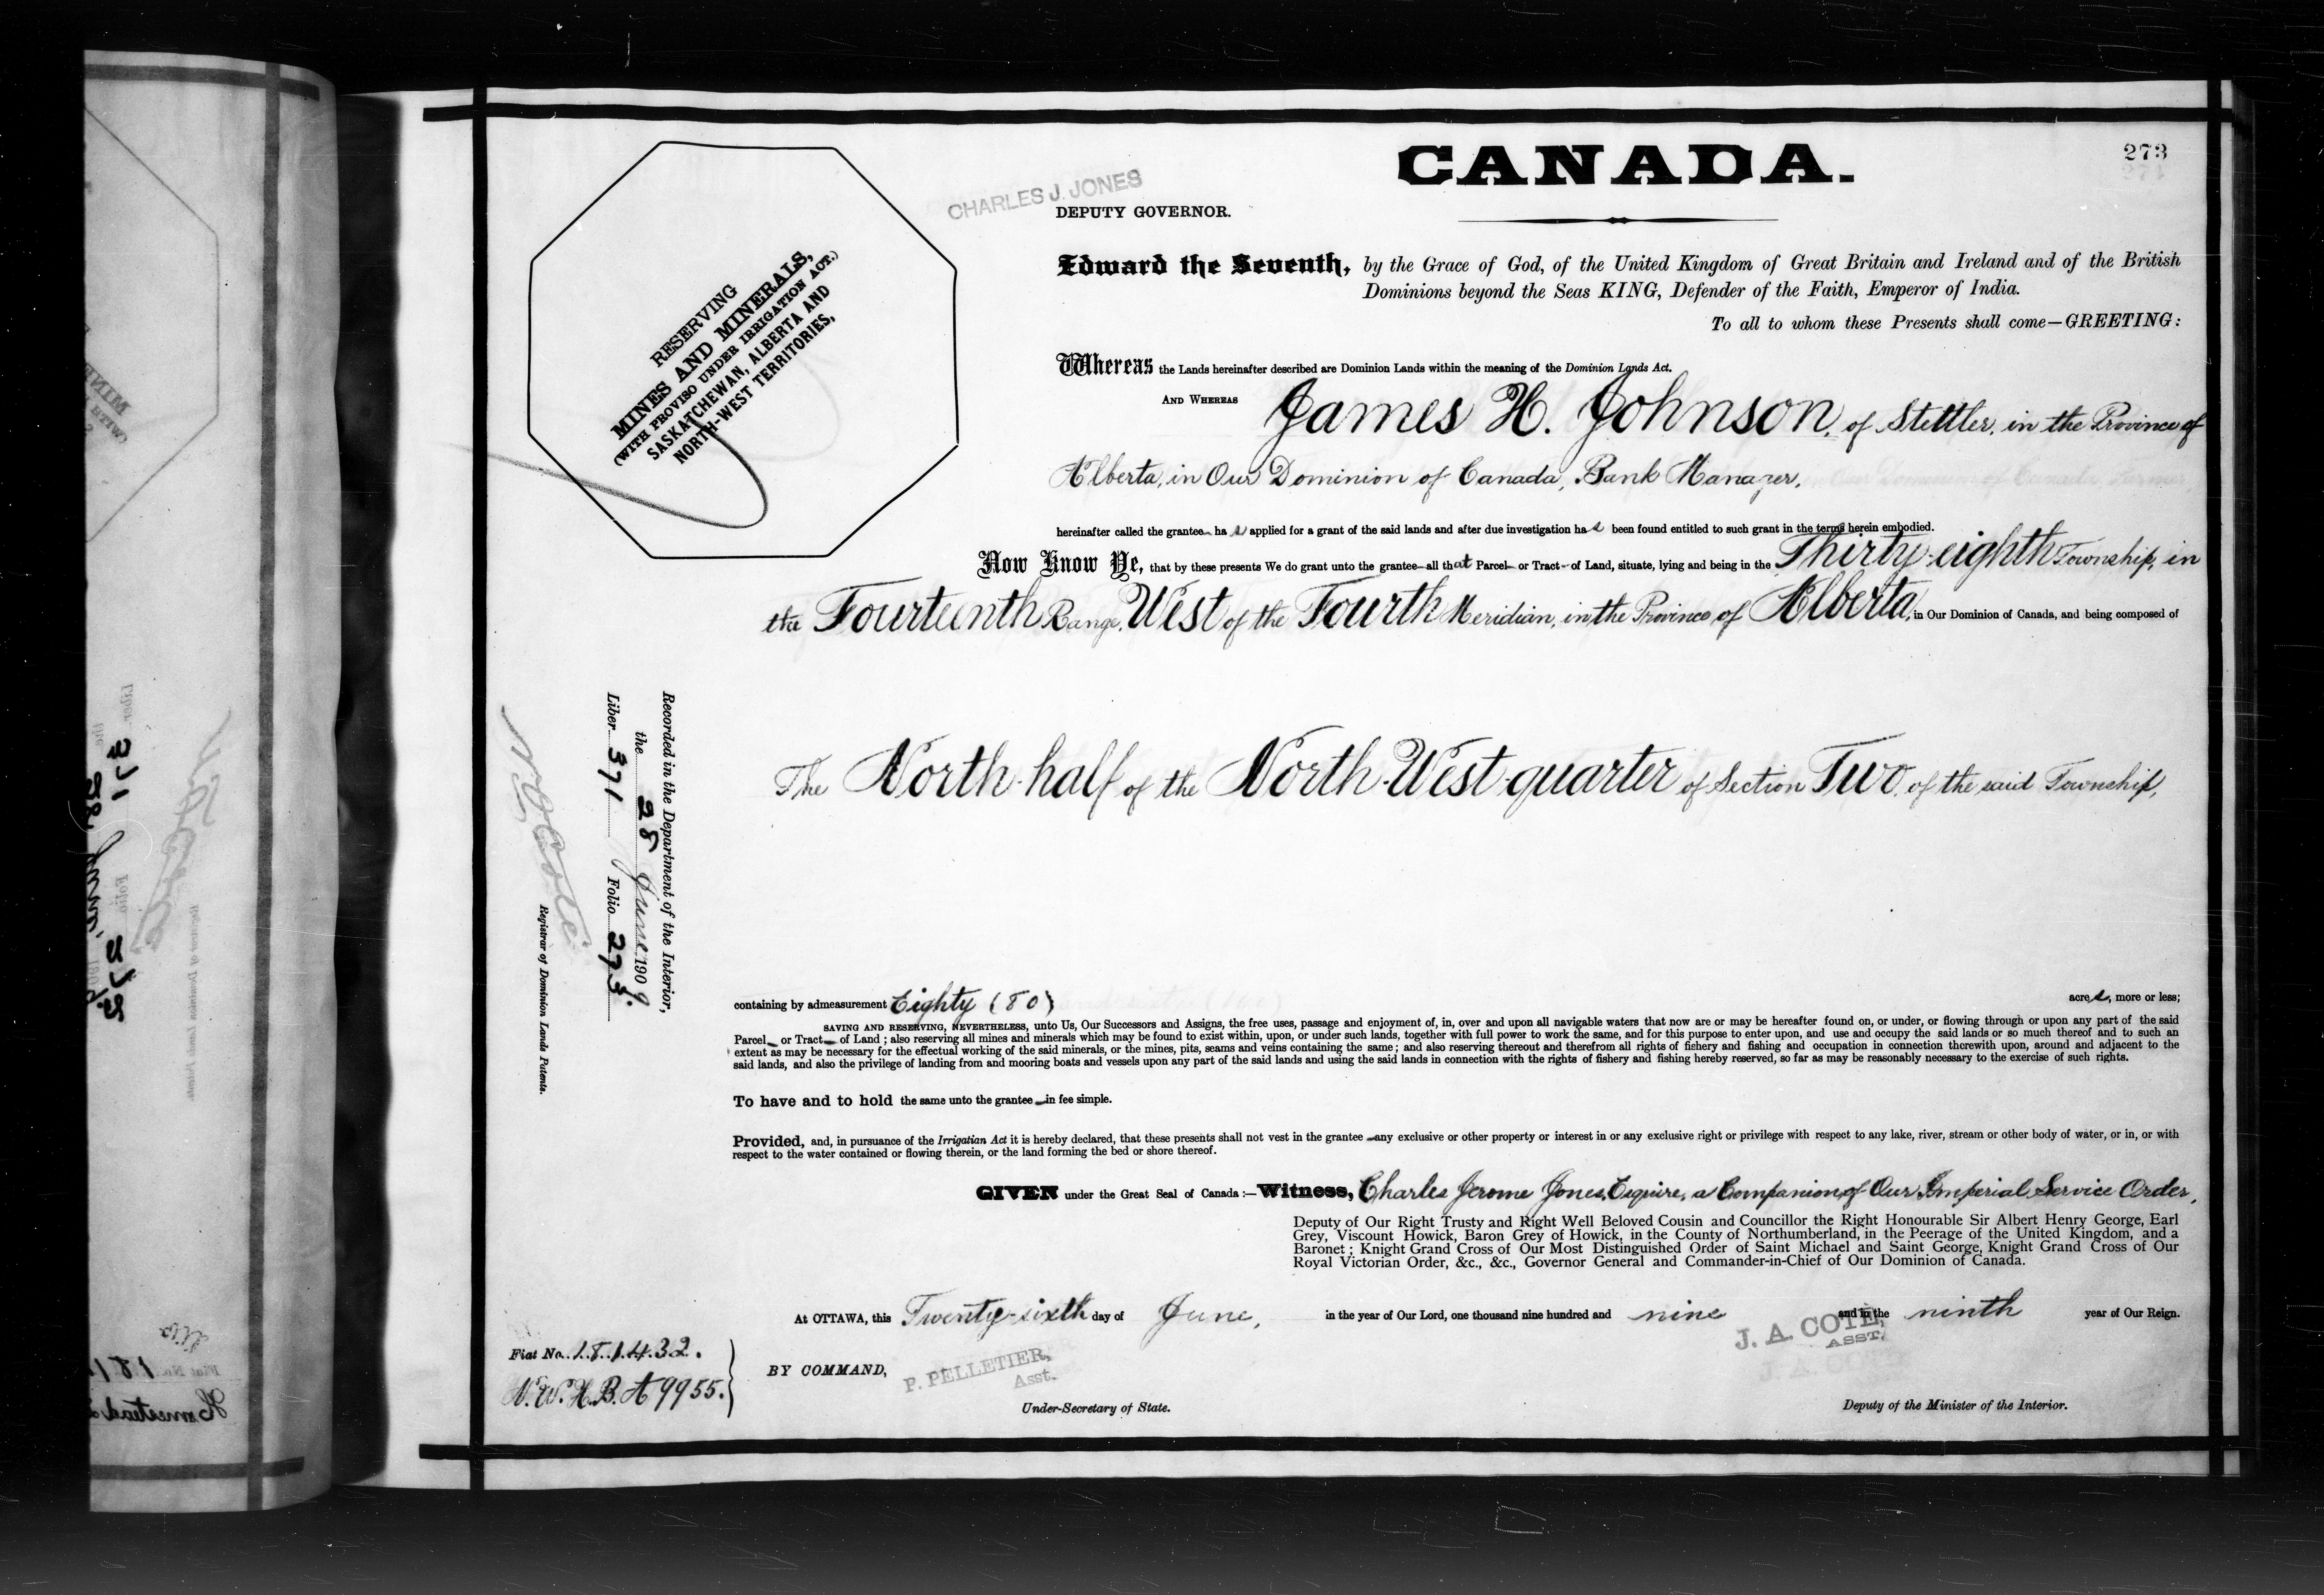 CANADA.
273
CHARLES J. JONES
DEPUTY GOVERNOR.
RESERVING
MINES AND MINERALS,
(WITH PROVISO UNDER IRRIGATION ACT.)
SASKATCHEWAN, ALBERTA AND
NORTH-WEST TERRITORIES,
Edward the Seventh, by the Grace of God, of the United Kingdom of Great Britain and Ireland and of the British
Dominions beyond the Seas KING, Defender of the Faith, Emperor of India.
To all to whom these Presents shall come—GREETING:
Whereas the Lands hereinafter described are Dominion Lands within the meaning of the Dominion Lands Act.
AND WHEREAS James H. Johnson, of Stettler, in the Province of
Alberta, in Our Dominion of Canada, Bank Manager,
hereinafter called the grantee has applied for a grant of the said lands and after due investigation has been found entitled to such grant in the terms herein embodied.
Now Know Ye, that by these presents We do grant unto the grantee—all that Parcel or Tract of Land, situate, lying and being in the Thirty-eighth Township, in
the Fourteenth Range, West of the Fourth Meridian, in the Province of Alberta, in Our Dominion of Canada, and being composed of
The North-half of the North-West-quarter of Section Two, of the said Township,
Recorded in the Department of the Interior,
the 28 June 1909.
Liber 371 Folio 273.
N O Coté
Registrar of Dominion Lands Patents.
containing by admeasurement Eighty (80) acres, more or less;
SAVING AND RESERVING, NEVERTHELESS, unto Us, Our Successors and Assigns, the free uses, passage and enjoyment of, in, over and upon all navigable waters that now are or may be hereafter found on, or under, or flowing through or upon any part of the said
Parcel or Tract of Land; also reserving all mines and minerals which may be found to exist within, upon, or under such lands, together with full power to work the same, and for this purpose to enter upon, and use and occupy the said lands or so much thereof and to such an
extent as may be necessary for the effectual working of the said minerals, or the mines, pits, seams and veins containing the same; and also reserving thereout and therefrom all rights of fishery and fishing and occupation in connection therewith upon, around and adjacent to the
said lands, and also the privilege of landing from and mooring boats and vessels upon any part of the said lands and using the said lands in connection with the rights of fishery and fishing hereby reserved, so far as may be reasonably necessary to the exercise of such rights.
To have and to hold the same unto the grantee in fee simple.
Provided, and, in pursuance of the Irrigatian Act it is hereby declared, that these presents shall not vest in the grantee any exclusive or other property or interest in or any exclusive right or privilege with respect to any lake, river, stream or other body of water, or in, or with
respect to the water contained or flowing therein, or the land forming the bed or shore thereof.
GIVEN under the Great Seal of Canada:—Witness, Charles Jerome Jones, Esquire, a Companion of Our Imperial Service Order,
Deputy of Our Right Trusty and Right Well Beloved Cousin and Councillor the Right Honourable Sir Albert Henry George, Earl
Grey, Viscount Howick, Baron Grey of Howick, in the County of Northumberland, in the Peerage of the United Kingdom, and a
Baronet; Knight Grand Cross of Our Most Distinguished Order of Saint Michael and Saint George, Knight Grand Cross of Our
Royal Victorian Order, &c., &c., Governor General and Commander-in-Chief of Our Dominion of Canada.
At OTTAWA, this Twenty-sixth day of June, in the year of Our Lord, one thousand nine hundred and nine and in the ninth year of Our Reign.
J. A. COTÉ,
ASST.
Fiat No. 181432.
N.W.H.B.A 9955.
BY COMMAND,
P. PELLETIER,
Asst.
Under-Secretary of State.
Deputy of the Minister of the Interior.